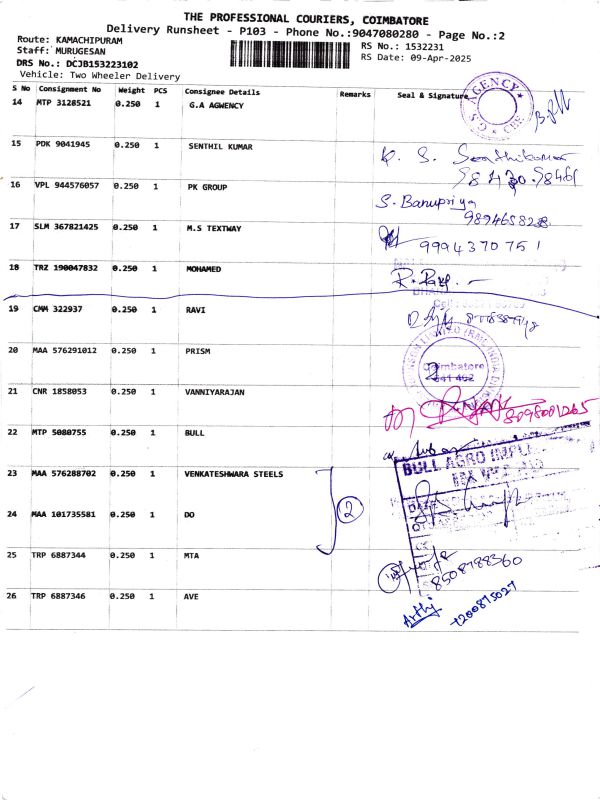 THE PROFESSIONAL COURIERS, COIMBATORE
Delivery Runsheet - P103 - Phone No.:9047080280 - Page No.:2
Route: KAMACHIPURAM
Staff: MURUGESAN
RS No.: 1532231
DRS No.: DCJB153223102
RS Date: 09-Apr-2025
Vehicle: Two Wheeler Delivery
S No Consignment No Weight PCS Consignee Details Remarks Seal & Signature
14 MTP 3128521 0.250 1 G.A AGWENCY
AGENCY
CBE
15 PDK 9041945 0.250 1 SENTHIL KUMAR
16 VPL 944576057 0.250 1 PK GROUP
S. Banupriya
17 SLM 367821425 0.250 1 M.S TEXTWAY
9994370751
18 TRZ 190047832 0.250 1 MOHAMED
19 CMM 322937 0.250 1 RAVI
20 MAA 576291012 0.250 1 PRISM
Coimbatore
21 CNR 1858053 0.250 1 VANNIYARAJAN
8098001265
22 MTP 5080755 0.250 1 BULL
BULL AGRO
23 MAA 576288702 0.250 1 VENKATESHWARA STEELS
2
24 MAA 101735581 0.250 1 DO
25 TRP 6887344 0.250 1 MTA
8508788360
26 TRP 6887346 0.250 1 AVE